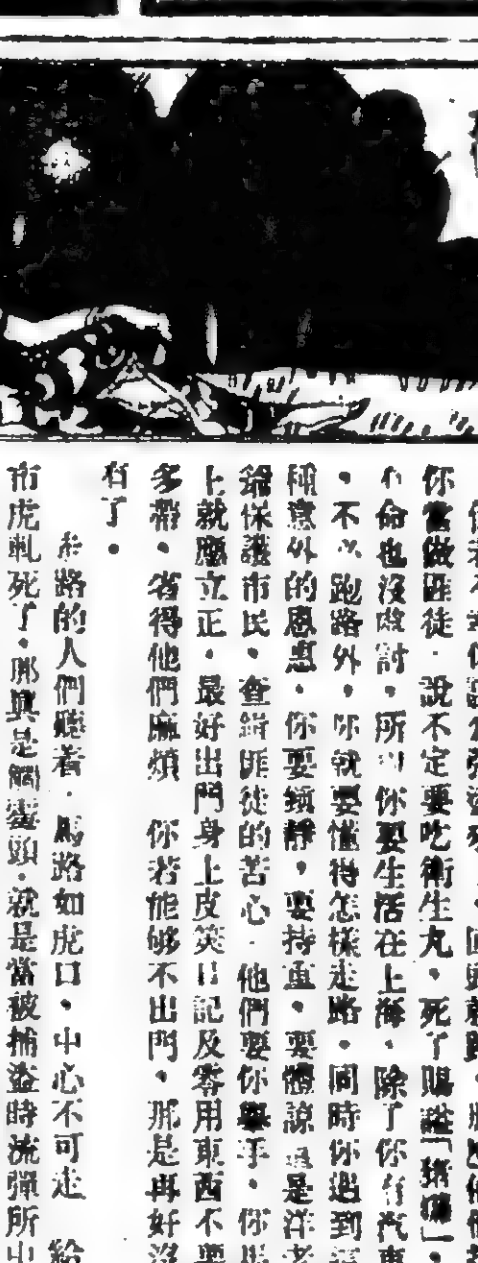 你當做匪徒．說不定要吃衛生丸。死了賜諡「猪玀」。
命也沒處討。所以你要生活在上海。除了你有汽車
。不必跑路外。你就要懂得怎樣走路。同時你遇到這
種意外的恩惠。你要鎮靜。要持重。要體諒這是洋老
爺保護市民。查緝匪徒的苦心．他們要你舉手。你馬
上就應立正。最好出門身上皮筴日記及零用東西不要
多帶。省得他們麻煩 你若能够不出門。那是再好沒
有了。
走路的人們聽着．馬路如虎口。中心不可走 給
市虎軋死了。那眞是觸霉頭．就是當被捕盜時流彈所